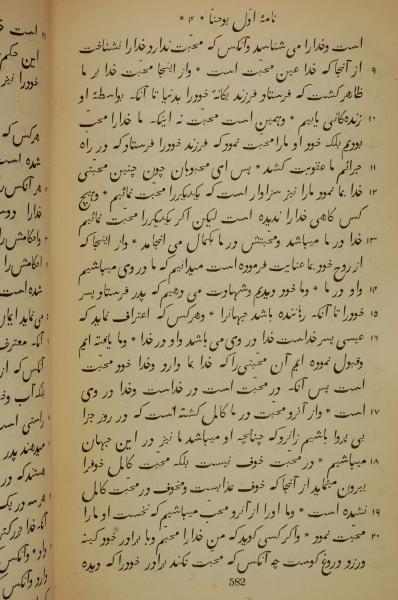 نامهٔ اوّل یوحنّا * ۴ *
است وخدارا می شناسد وآنکس که محبّت ندارد خدارا نشناخت
۹ از آنجا که خدا عین محبّت است * واز اینجا محبّت خدا بر ما
ظاهر کشت که فرستاد فرزند یکانهٔ خودرا بدنیا تا آنکه بواسطهٔ او
۱۰ زنده‌کانی یابیم * وهمین است محبّت نه اینکه ما خدارا محبّ
بودیم بلکه خود او مارا محبّت نمود که فرزند خودرا فرستاد که در راه
۱۱ جرائم ما عقوبت کشد * پس ای محبوبان چون چنین محبّتی
۱۲ خدا بما نمود مارا نیز سزاوار است که یکدیکررا محبّت نمائیم * وهیچ
کس کاهی خدارا ندیده است لیکن اکر یکدیکررا محبّت نمائیم
۱۳ خدا در ما میباشد ومحبّتش در ما بکمال می انجامد * واز اینجا که
از روح خود بما عنایت فرموده است میدانیم که ما در وی میباشیم
۱۴ واو در ما * وما خود دیدیم وشهادت می دهیم که پدر فرستاد پسر
۱۵ خودرا تا آنکه رهاننده باشد جهانرا * وهرکس که اعتراف نماید که
۱۶ عیسی پسر خداست خدا در وی می باشد واو در خدا * وما یافته ایم
وقبول نموده ایم آن محبّتی را که خدا بما دارد وخدا خود محبّت
است پس آنکه در محبّت است در خداست وخدا در وی
۱۷ است * واز آنرو محبّت در ما کامل کشته است که در روز جزا
بی پروا باشیم زانرو که چنانچه او میباشد ما نیز در این جهان
۱۸ میباشیم * در محبّت خوف نیست بلکه محبّت کامل خوفرا
بیرون مینماید از آنجا که خوف عذابست وخوف در محبّت کامل
۱۹ نشده است * وما اورا از آنرو محبّ میباشیم که نخست او مارا
۲۰ محبّت نمود * واکر کسی کوید که من خدارا محبّم وبا برادر خود کینه
ورزد دروغ کوست چه آنکس که محبّت نکند برادر خودرا که دیده
582